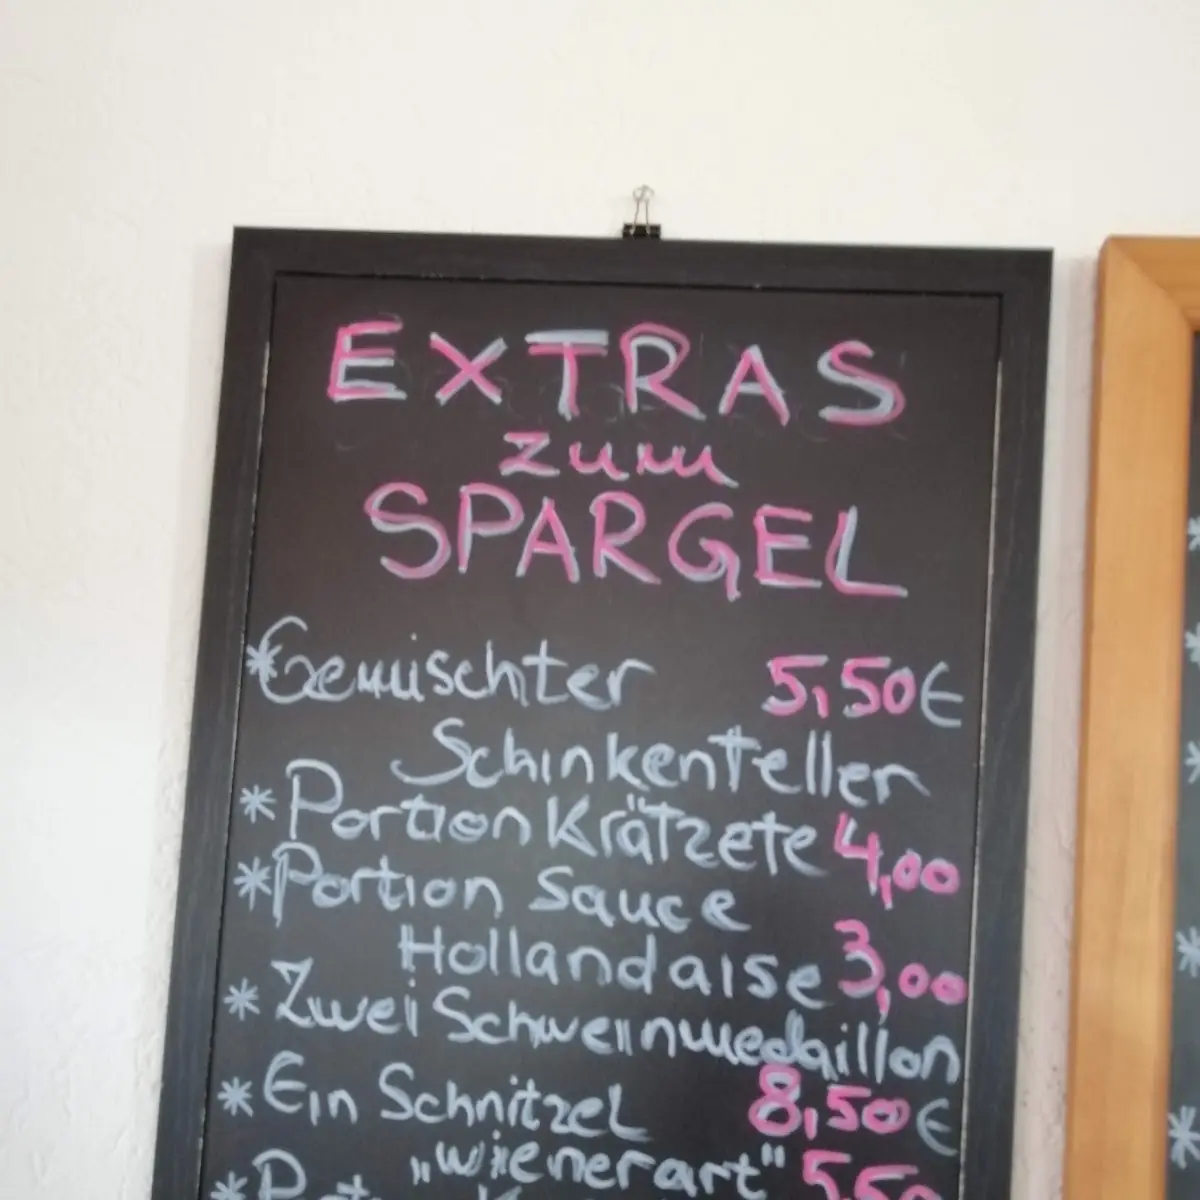 EXTRAS
zum
SPARGEL
*Gemischter 5,50€
Schinkenteller
*Portion Krätzete 4,00
*Portion Sauce
Hollandaise 3,00
*Zwei Schweinmedaillon
8,50€
*Ein Schnitzel
„wienerart" 5,50